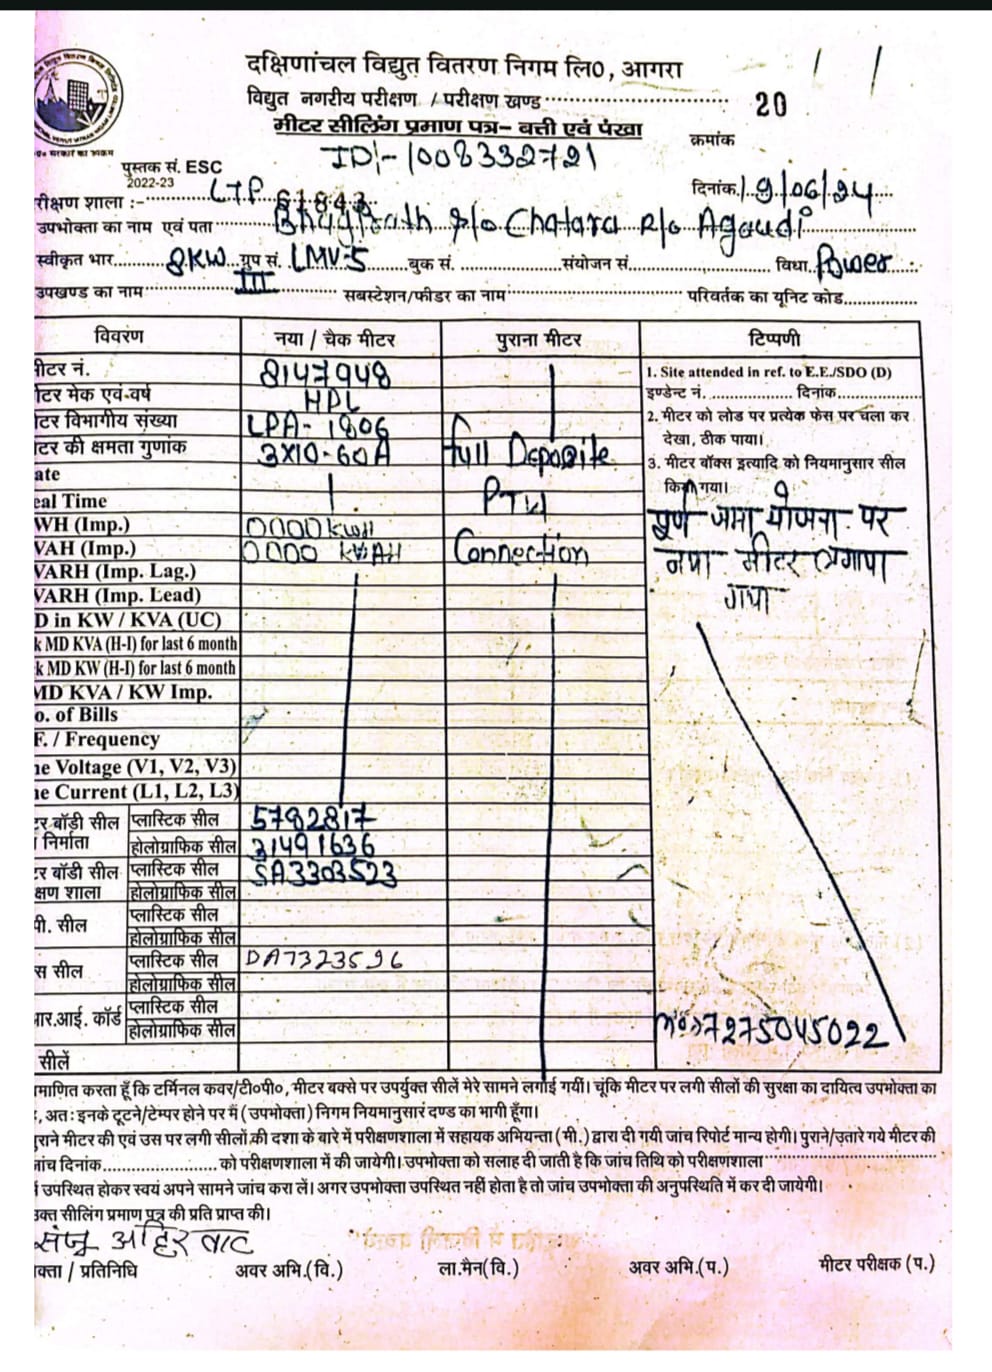 दक्षिणांचल विद्युत वितरण निगम लि0, आगरा
विद्युत नगरीय परीक्षण / परीक्षण खण्ड 20
मीटर सीलिंग प्रमाण पत्र- बत्ती एवं पंखा
क्रमांक
ID:-1008332721
पुस्तक सं. ESC
2022-23
दिनांक 19/06/24
रीक्षण शाला :- LTP 67843
उपभोक्ता का नाम एवं पता Bhagirath S/o Chatara R/o Agaudi
स्वीकृत भार 8KW ग्रुप सं. LMV-5 बुक सं. संयोजन सं. विधा Power
उपखण्ड का नाम III सबस्टेशन/फीडर का नाम परिवर्तक का यूनिट कोड
विवरण नया / चैक मीटर पुराना मीटर टिप्पणी
ीटर नं. 8147948
टर मेक एवं-वर्ष HPL
टर विभागीय संख्या LPA-1806
टर की क्षमता गुणांक 3X10-60A Full Deposite
ate
eal Time PTW
WH (Imp.) 0000KWH
VAH (Imp.) 0000 KVAH Connection
VARH (Imp. Lag.)
VARH (Imp. Lead)
D in KW / KVA (UC)
k MD KVA (H-I) for last 6 month
k MD KW (H-I) for last 6 month
MD KVA / KW Imp.
o. of Bills
F. / Frequency
ne Voltage (V1, V2, V3)
ne Current (L1, L2, L3)
1. Site attended in ref. to E.E./SDO (D)
इण्डेन्ट नं. दिनांक
2. मीटर को लोड पर प्रत्येक फेस पर चला कर
देखा, ठीक पाया।
3. मीटर बॉक्स इत्यादि को नियमानुसार सील
किया गया।
पूर्ण जमा योजना पर
नया मीटर लगाया
गया
टर बॉडी सील प्लास्टिक सील 5792817
निर्माता होलोग्राफिक सील 31491636
र बॉडी सील प्लास्टिक सील SA3303523
क्षण शाला होलोग्राफिक सील
पी. सील प्लास्टिक सील
होलोग्राफिक सील
स सील प्लास्टिक सील DA7323596
होलोग्राफिक सील
आर.आई. कॉर्ड प्लास्टिक सील
होलोग्राफिक सील
मो०>7275045022
सीलें
माणित करता हूँ कि टर्मिनल कवर/टी०पी०, मीटर बक्से पर उपर्युक्त सीलें मेरे सामने लगाई गयीं। चूंकि मीटर पर लगी सीलों की सुरक्षा का दायित्व उपभोक्ता का
, अतः इनके टूटने/टेम्पर होने पर मैं (उपभोक्ता) निगम नियमानुसार दण्ड का भागी हूँगा।
पुराने मीटर की एवं उस पर लगी सीलों की दशा के बारे में परीक्षणशाला में सहायक अभियन्ता (मी.) द्वारा दी गयी जांच रिपोर्ट मान्य होगी। पुराने/उतारे गये मीटर की
जांच दिनांक को परीक्षणशाला में की जायेगी। उपभोक्ता को सलाह दी जाती है कि जांच तिथि को परीक्षणशाला
में उपस्थित होकर स्वयं अपने सामने जांच करा लें। अगर उपभोक्ता उपस्थित नहीं होता है तो जांच उपभोक्ता की अनुपस्थिति में कर दी जायेगी।
उक्त सीलिंग प्रमाण पत्र की प्रति प्राप्त की।
संजू अहिरवार
क्ता / प्रतिनिधि अवर अभि.(वि.) ला.मैन(वि.) अवर अभि.(प.) मीटर परीक्षक (प.)